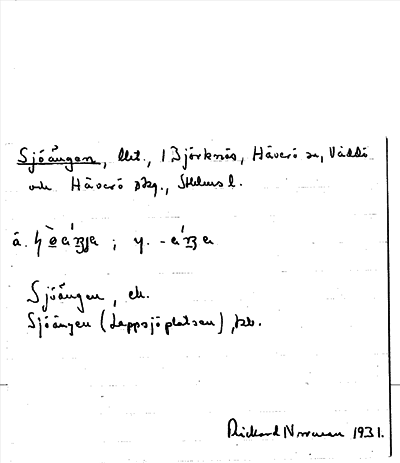 Sjöängen, lht., i Björknäs, Häverö sn, Väddö
och Häverö skg., Sthlms l.
ä. ; y.
Sjöängen, ek.
Sjöängen (Leppsjöplatsen), jb.
Rickard Norrman 1931.